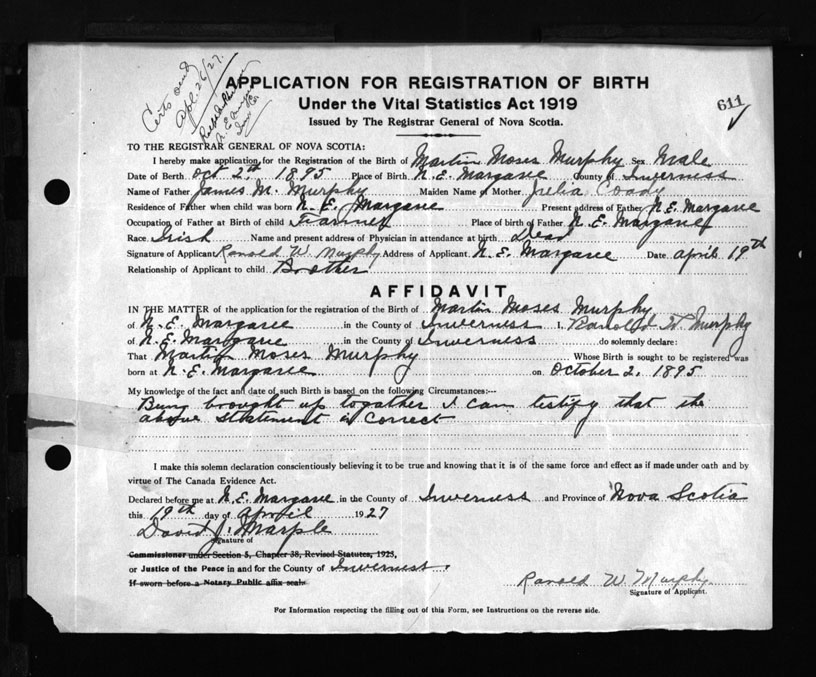 Certs send
Apl. 26/27.
APPLICATION FOR REGISTRATION OF BIRTH
Under the Vital Statistics Act 1919
611
Issued by The Registrar General of Nova Scotia.
TO THE REGISTRAR GENERAL OF NOVA SCOTIA:
I hereby make application for the Registration of the Birth of Martin Moses Murphy Sex Male
Date of Berth Oct 2nd 1895 Place of Birth N. E. Margaree County of Inverness
Name of Father James M. Murphy Maiden Name of Mother Julia Coady
Residence of Father when child was born N. E. Margaree Present address of Father N. E. Margaree
Occupation of Father at Birth of child Farmer Place of birth of Father N. E. Margaree
Race Irish Name and present address of Physician in attendance at birth Dead
Signature of Applicant Ranold W Murphy Address of Applicant N. E. Margaree Date April 19th
Relationship of Applicant to child Brother
AFFIDAVIT
IN THE MATTER of the application for the registration of the Birth of Martin Moses Murphy
of N. E. Margaree in the County of Inverness I, Ranold W. Murphy
of N. E. Margaree in the County of Inverness do solemnly declare:
That Martin Moses Murphy Whose Birth is sought to be registered was
born at N. E. Margaree on October 2, 1895
My knowledge of the fact and date of such Birth is based on the following Circumstances:—
Being brought up togather I can testify that the
above Statement is Correct
I make this solemn declaration conscientiously believing it to be true and knowing that it is of the same force and effect as if made under oath and by
virtue of The Canada Evidence Act.
Declared before me at N. E. Margaree in the County of Inverness and Province of Nova Scotia
this 19th day of April 1927
David J. Marple
Signature of
Commissioner under Section 5, Chapter 38, Revised Statutes, 1923,
or Justice of the Peace in and for the County of Inverness.
If sworn before a Notary Public affix seal.
Ranold W Murphy
Signature of Applicant.
For Information respecting the filling out of this Form, see Instructions on the reverse side.